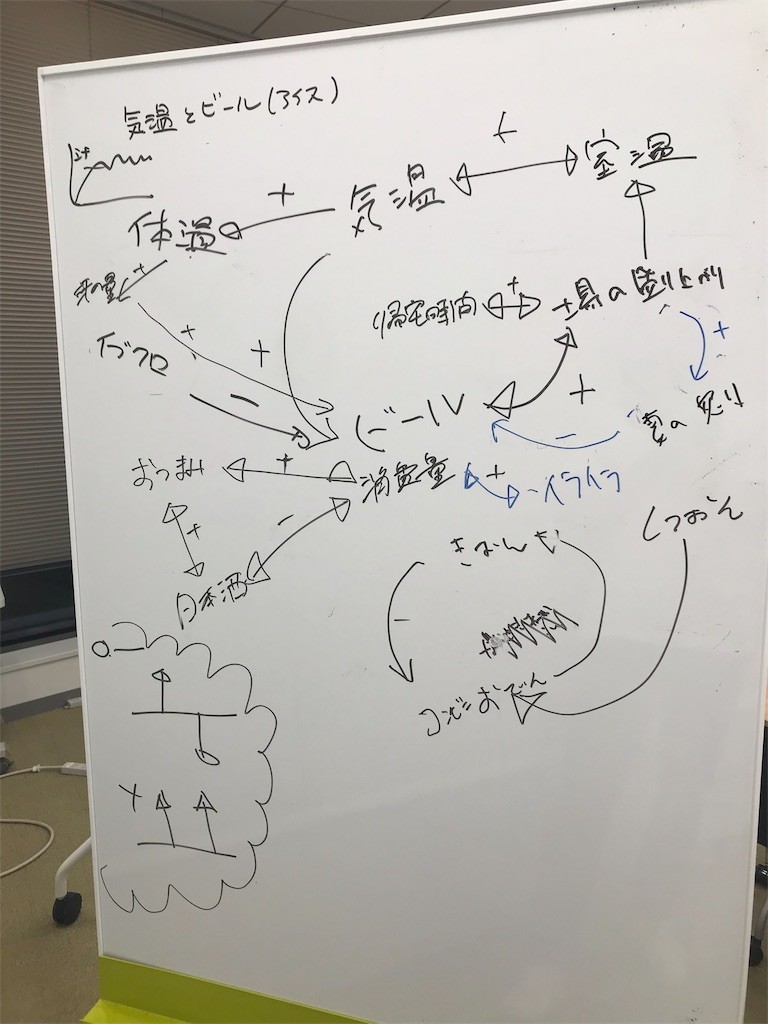 気温とビール(アイス)
+
室温
気温
+
体温
+
汗の量
帰宅時間
+
場の盛り上がり
+
+
+
イブプロ
−
+
ビール
消費量
妻の怒り
−
おつまみ
+
+
イライラ
+
−
日本酒
しつおん
きおん
−
コンビニおでん